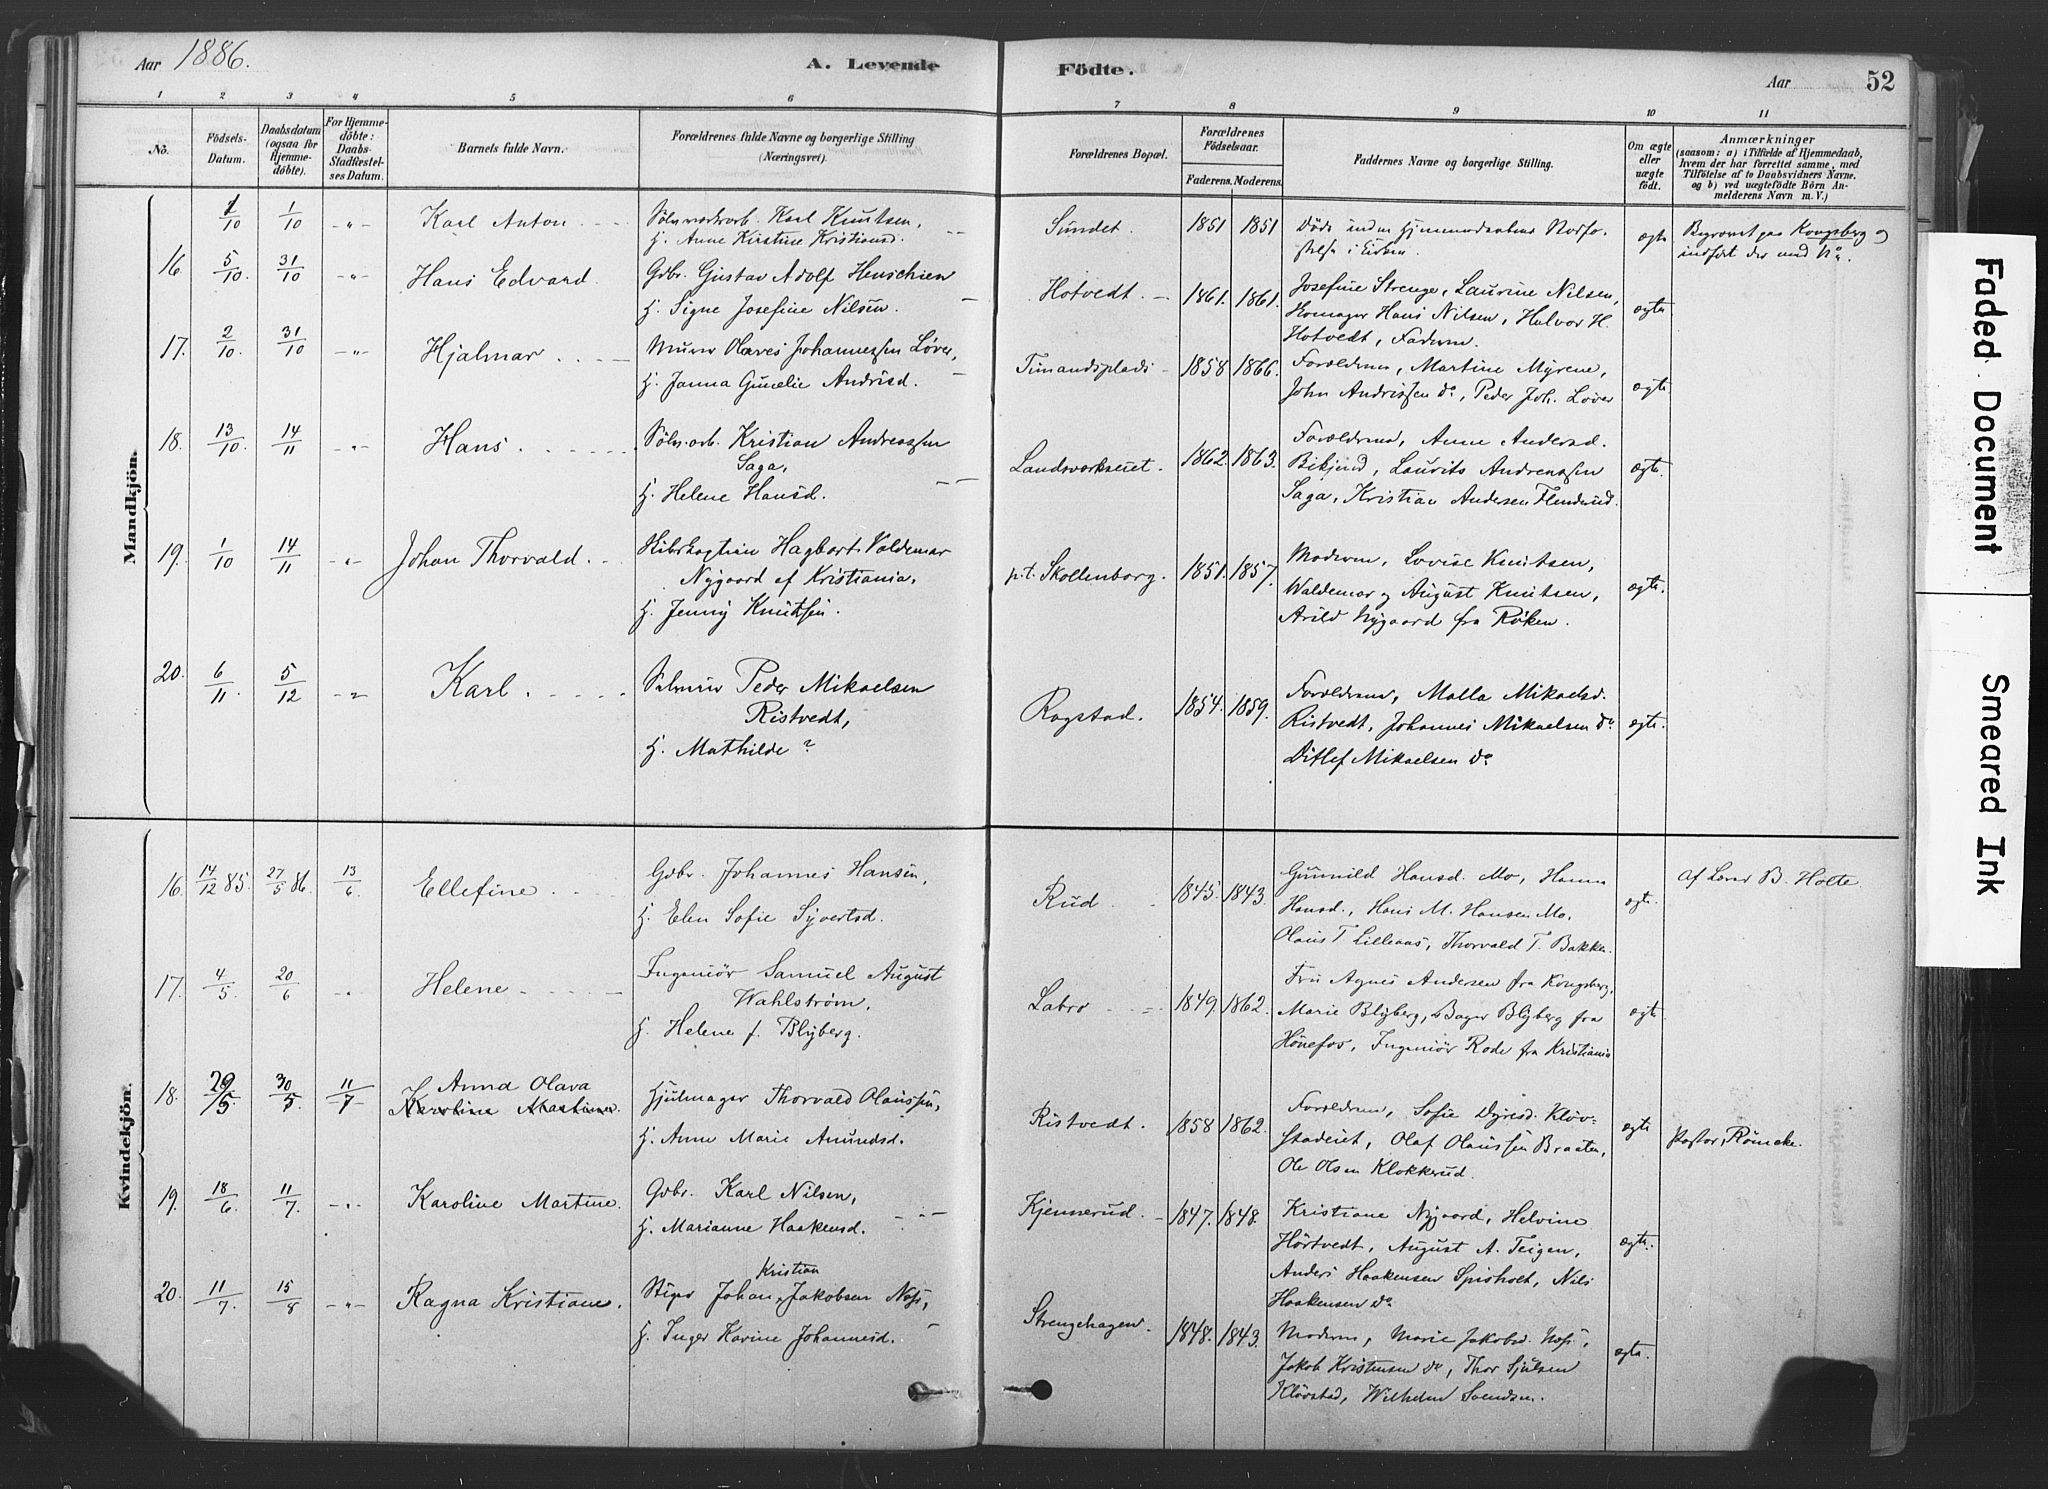 Aar 1886.
A. Levende Födte.
Aar 52
1 2 3 4 5 6 7 8 9 10 11
No.
Födsels-Datum.
Daabsdatum (ogsaa for Hjemme-döbte).
For Hjemme-döbte: Daabs-Stadfæstel-ses Datum.
Barnets fulde Navn.
Forældrenes fulde Navne og borgerlige Stilling (Næringsvei).
Forældrenes Bopæl.
Forældrenes Födselsaar.
Faderens. Moderens.
Faddernes Navne og borgerlige Stilling.
Om ægte eller uægte födt.
Anmærkninger
(saasom: a) i Tilfælde af Hjemmedaab, hvem der har forrettet samme, med Tilföielse af to Daabsvidners Navne. og b) ved uægtefödte Börn An-melderens Navn m. V.)
Mandkjön.
1/10 1/10 -"- Karl Anton
Karl Knutsen,
H. Anne Kirstine Kristiansd.
Sundet. 1851 1851
Döde inden
ægte
Begravet paa Kongsberg og
indfört der med No.
16 5/10 31/10 -"- Hans Edvard
Gdbr. Gustav Adolf Henschien
H. Signe Josefine Nilsen
Hotvedt. 1861. 1861.
Josefine Strenge, Laurine Nilsen,
Hans Nilsen, Halvor H.
Hotvedt, Faderen.
ægte
17. 2/10 31/10 -"- Hjalmar
Murer Olaves Johannessen Løver,
H. Janna Gunelie Andrisd.
Timandsplads 1858 1866.
Forældrene, Martine Myrene,
John Andrissen do, Peder Joh. Løver
ægte
18. 13/10 14/11 " Hans
Sølv.arb. Kristian Andreassen
Saga,
H. Helene Hansd.
Landsverkseiet. 1862. 1863.
Forældrene, Anne Andersd.
Bikjend, Laurits Andreassen
Saga, Kristian Andersen
ægte.
19. 1/10 14/11 " Johan Thorvald.
Hagbart Valdemar
Nygaard af Kristiania,
H. Jenny Knutsen.
p.t. Skollenborg. 1851. 1857.
Moderen, Lovise Knutsen,
Waldemar og August Knutsen,
Arild Nygaard fra Röken.
ægte.
20. 6/11 5/12 -"- Karl.
Peder Mikaelsen
Ristvedt,
H. Mathilde ?
Rogstad. 1854. 1859.
Forældrene, Malla Mikaelsd.
Ristvedt, Johannes Mikaelsen do
Ditlef Mikaelsen do
ægte.
Kvindekjön.
16. 14/12 85. 27/5 86. 13/6 Ellefine
Gdbr. Johannes Hansen,
H. Elen Sofie Syvertsd.
Rud. 1845. 1843.
Gunnild Hansd. Mo, Hanna
Hansd., Hans M. Hansen Mo.
Olaus T. Lilleaas, Thorvald T. Bakken
ægte.
Af Lærer B. Holte.
17. 4/5 20/6 " Helene
Ingeniör Samuel August
Wahlström,
H. Helene f. Blyberg.
Labro 1849. 1862.
Fru Agnes Andersen fra Kongsberg,
Marie Blyberg, Bager Blyberg fra
Hönefos, Ingeniör Rode fra Kristiania
ægte
18. 29/5 30/5 11/7 Anna Olava
Karoline Martine.
Hjulmager Thorvald Olaussen,
H. Anne Marie Amundsd.
Ristvedt. 1858 1862.
Forældrene, Sofie Dyresd. Klöv-
stadeiet, Olaf Olaussen Braaten,
Ole Olsen Klokkerud.
ægte
Pastor Römcke.
19. 18/6 11/7 -"- Karoline Martine.
Gdbr. Karl Nilsen,
H. Marianne Haakensd.
Kjennerud. 1847. 1848.
Kristiane Nygaard, Helvine
Hörtvedt, August A. Teigen,
Anders Haakensen Spisholt, Nils
Haakensen do
ægte.
20. 11/7 15/8 -"- Ragna Kristiane.
Kristian
Stiger Johan Jakobsen Næss,
H. Inger Karine Johannesd.
Strengehagen. 1848. 1843.
Moderen, Marie Jakobsd. Næss,
Jakob Kristensen do, Thor Sjulsen
Klövstad, Wilhelm Svendsen.
ægte.
Faded Document
Smeared Ink